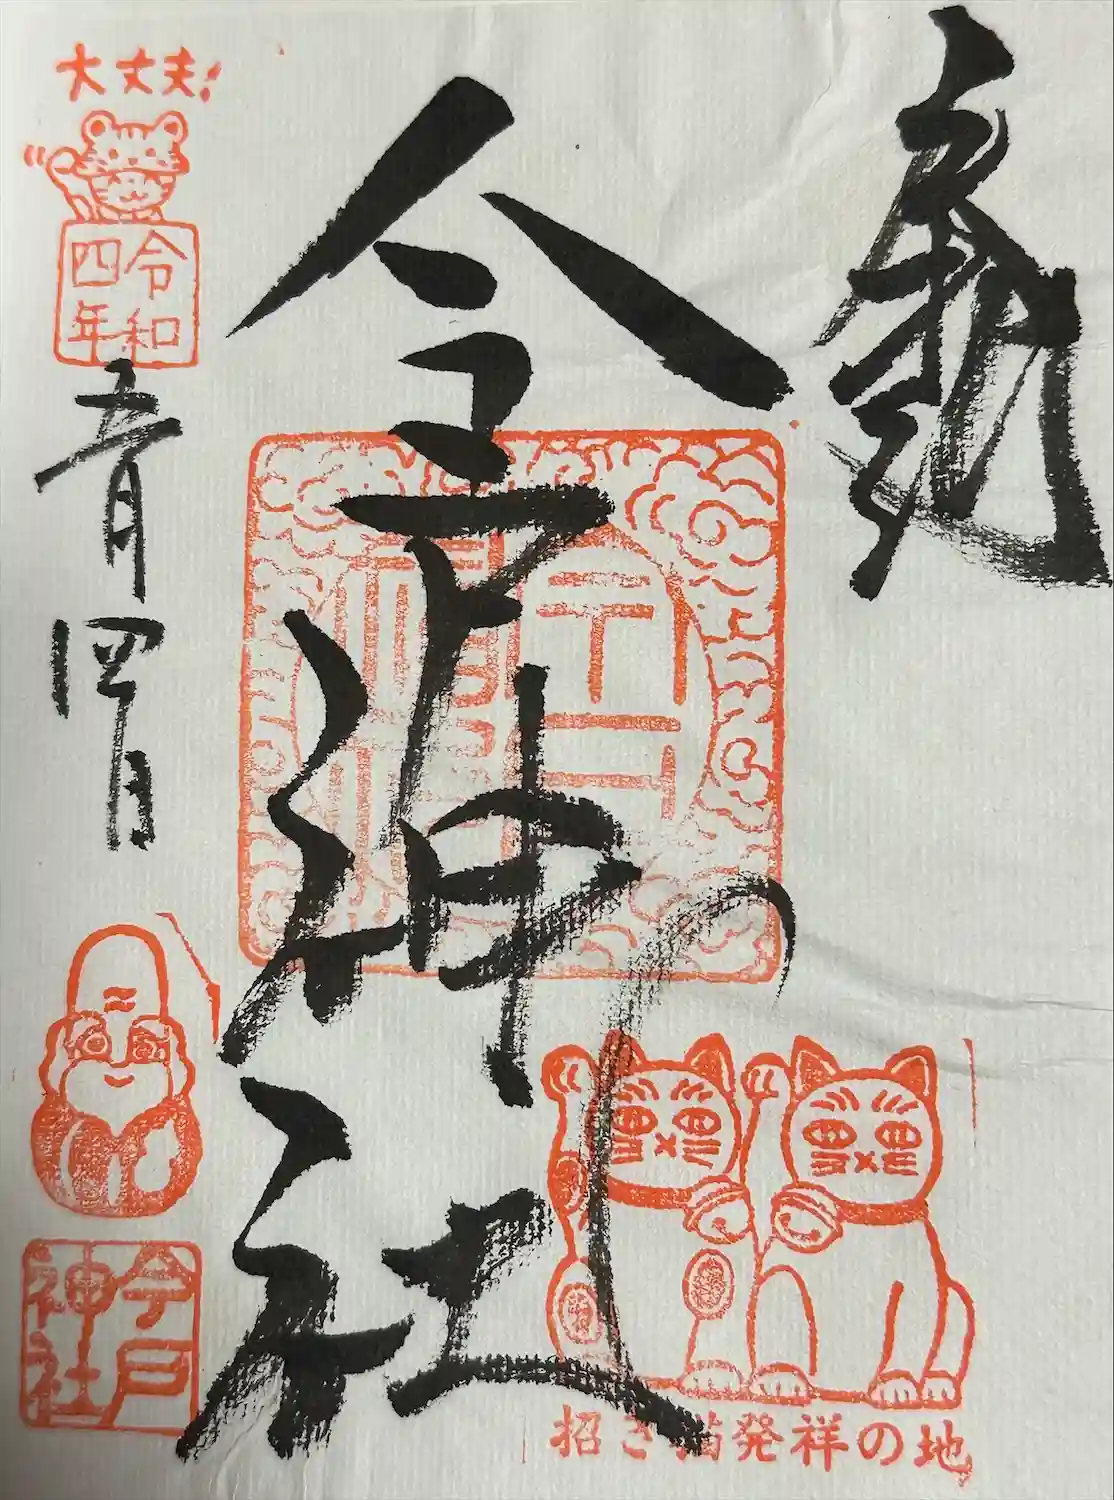 今戸神社
大丈夫!
令和
四年
五月四日
今戸
神社
招き猫発祥の地